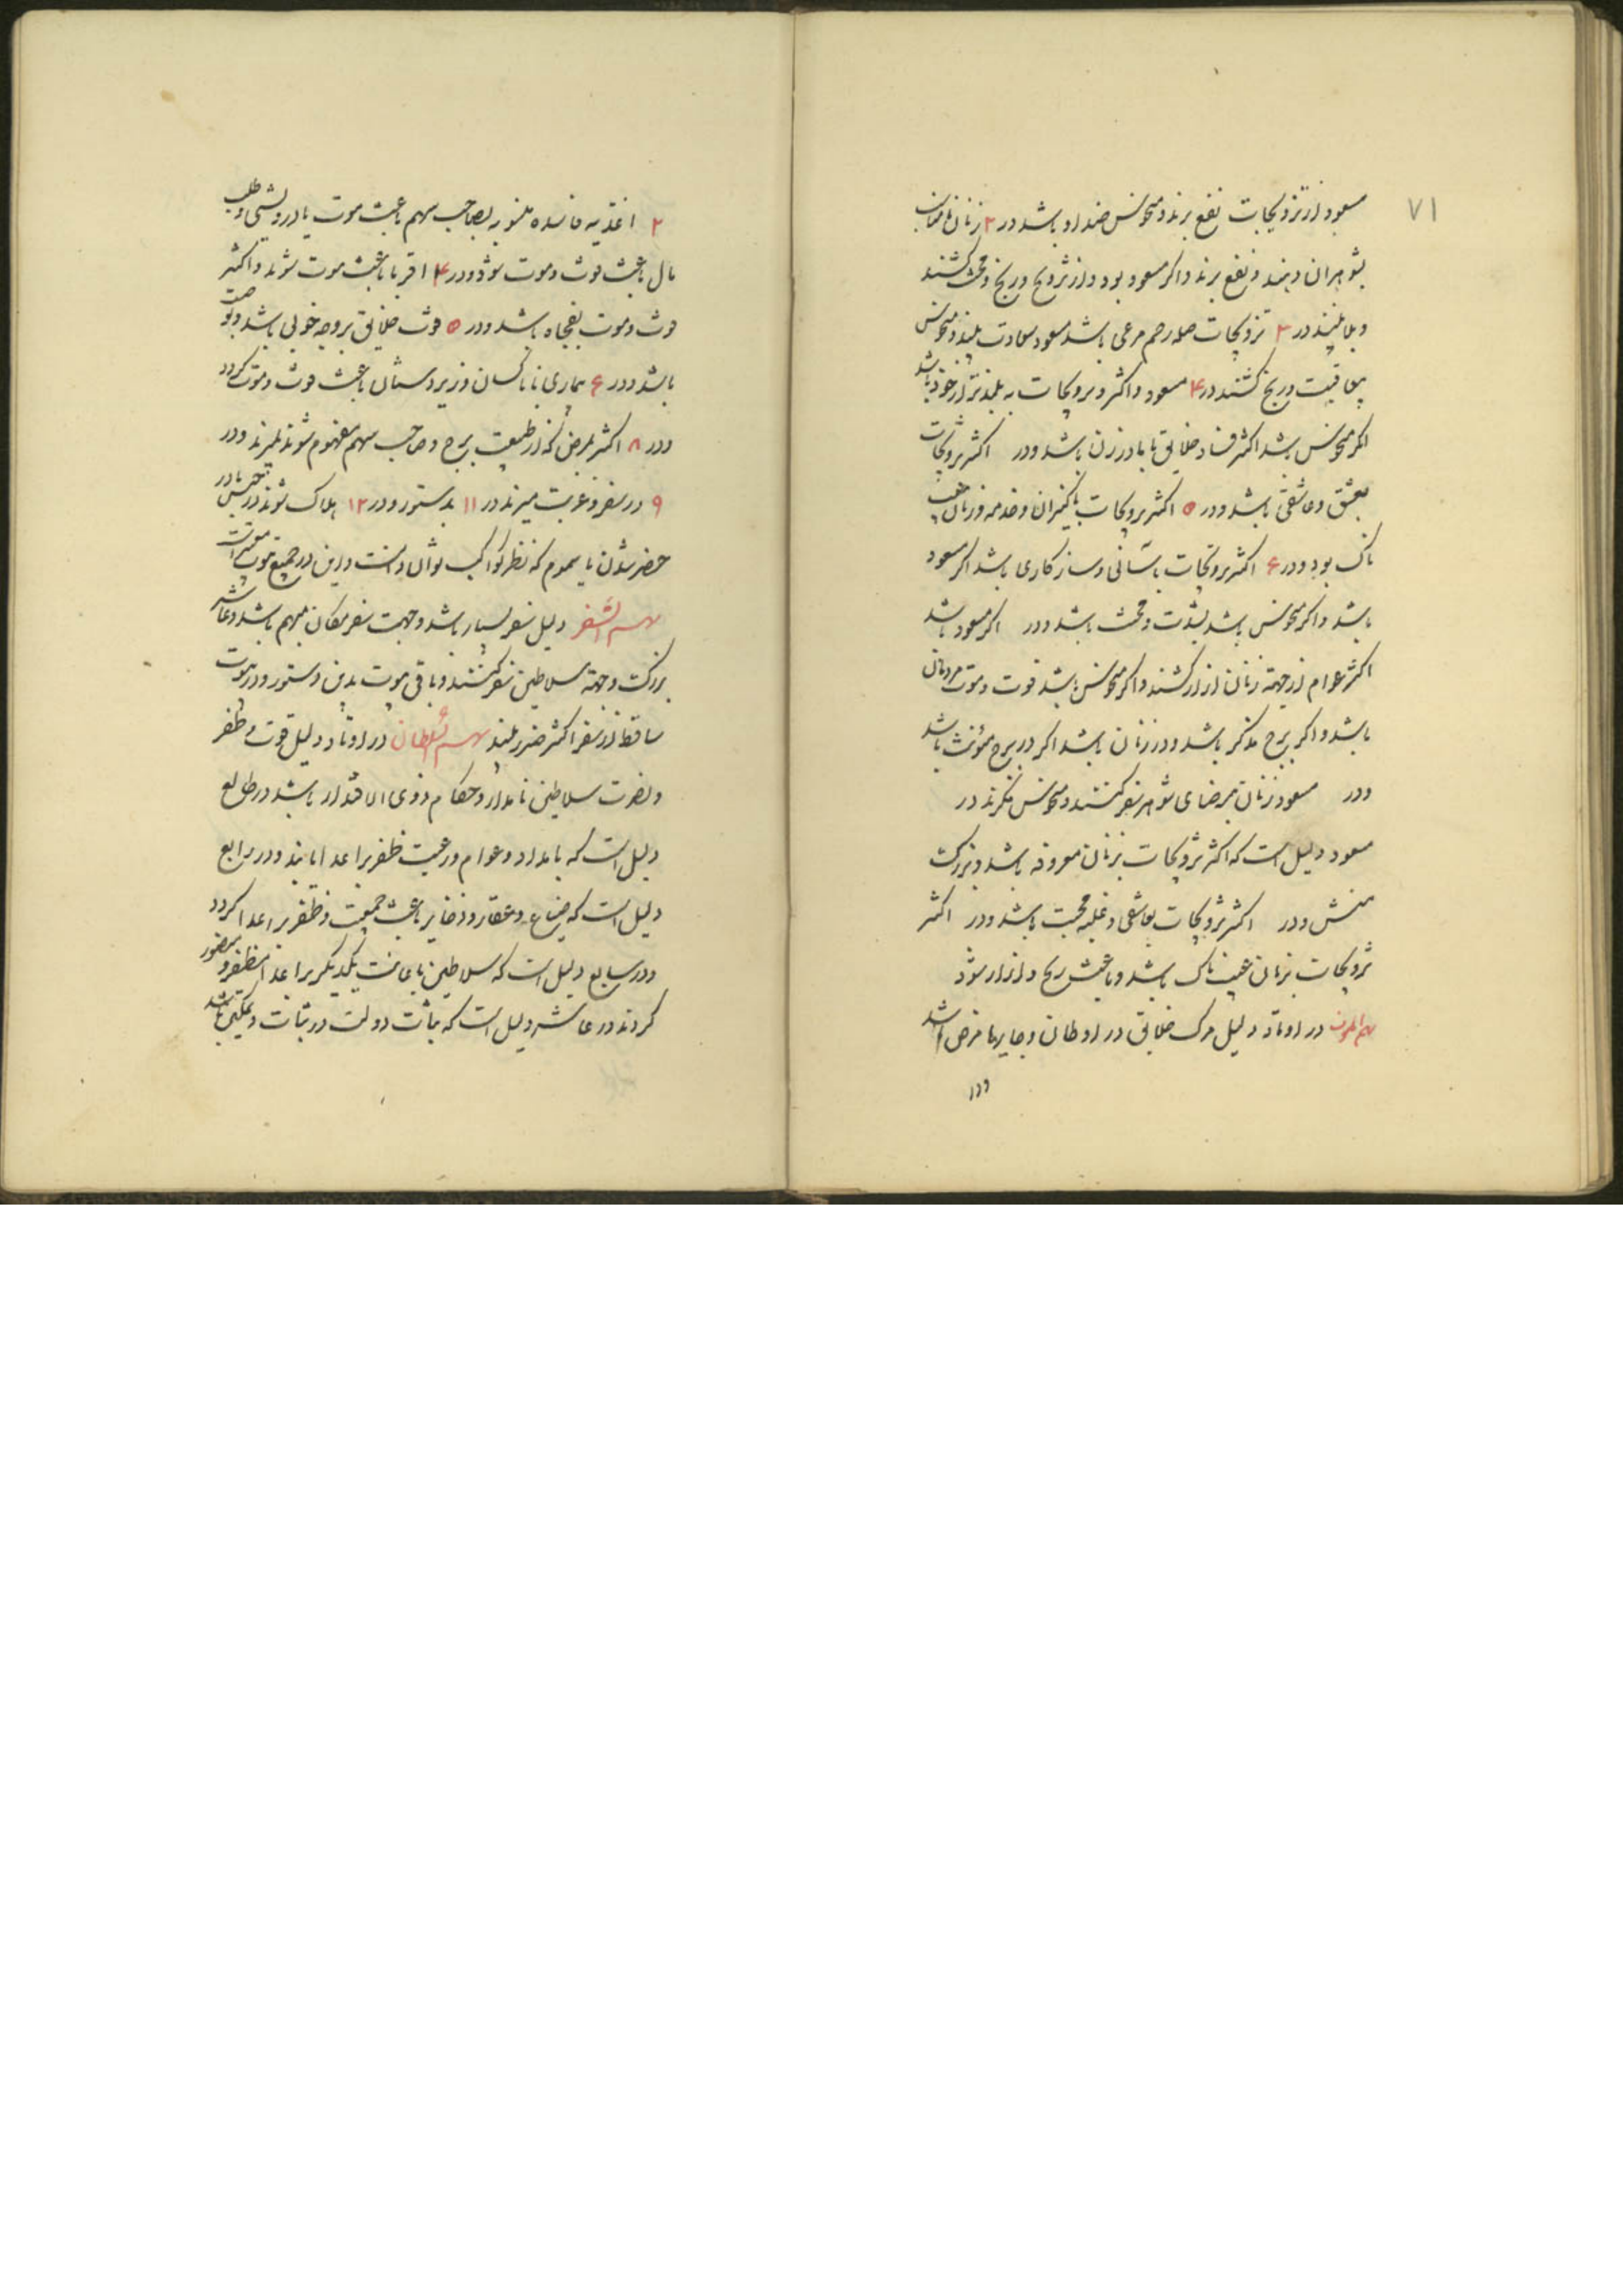 ۷۱
مسعود از تزویجات نفع برند و منحوس ضد او باشد در ۲ زنان
بشوهران دهند و نفع برند و اگر مسعود بود و از تزویج و رنج و محنت کشند
و بلا بینند در ۳ تزویجات صله رحم مرعی باشد مسعود سعادت بینند و منحوس
بعاقبت رنج کشند در ۴ مسعود و اکثر و تزویجات به بلندتر از خود باشد
اگر منحوس باشد اکثر فساد خلایق با مادر زن باشد ودر اکثر تزویجات
بعشق و عاشقی باشد ودر ۵ اکثر تزویجات با کنیزان و خدمه و زنان
ناک بود ودر ۶ اکثر تزویجات بآسانی و سازکاری باشد اگر مسعود
باشد و اگر منحوس باشد بشدت و محنت باشد ودر اگر مسعود باشد
اکثر عوام از جهة زنان آزار کشند و اگر منحوس باشد فوت و موت مردان
باشد و اگر برج مذکر باشد ودر زنان باشد اگر در برج مؤنث باشد
ودر مسعود زنان برضای شوهر سفر کنند و منحوس نگرند در
مسعود دلیل است که اکثر تزویجات بزنان معروفه باشد و بزرگ
منش ودر اکثر تزویجات بعاشقی و غلبه محبت باشد ودر اکثر
تزویجات بزنان عیب ناک باشد و باعث رنج و آزار شود
سهم الموت در اوتاد دلیل مرک خلایق در اوطان و جایها باشد
ودر
۲ اغذیه فاسده منسوبه بصاحب سهم باعث موت یا درویشی و طلب
مال باعث فوت و موت شود ودر ۴ اقربا باعث موت شوند و اکثر
فوت و موت بفجاه باشد ودر ۵ فوت خلایق بروجه خوبی باشد
باشد ودر ۶ بیماری با ناکسان و زیردستان باعث فوت و موت گردد
ودر ۸ اکثر بمرض که از طبیعت برج و صاحب سهم مفهوم شوند بمیرند ودر
۹ در سفر و غربت میرند در ۱۱ بدستور ودر ۱۲ هلاک شوند در حبس یا در
حضر شدن یا سموم که نظر کواکب توان دانست و این در جمیع بیوت است
سهم السفر دلیل سفر بسیار باشد و جهت سفر مکان مبهم باشد و عاشر
بزرگست و جهة سلاطین سفر کنند و باقی بیوت بدین دستور ودر بیوت
ساقط از سفر اکثر ضرر بینند سهم السلطان در اوتاد دلیل قوت و ظفر
و نصرت سلاطین نامدار و حکام ذوی الاقتدار باشد در طالع
دلیل است که بامداد و عوام و رعیت ظفر بر اعدا یابند ودر رابع
دلیل است که ضیاع و عقار و ذخایر باعث جمعیت و ظفر بر اعدا گردد
ودر سابع دلیل است که سلاطین باعانت یکدیگر بر اعدا مظفر و منصور
گردند در عاشر دلیل است که ثبات دولت در ثبات و تمکین باشد